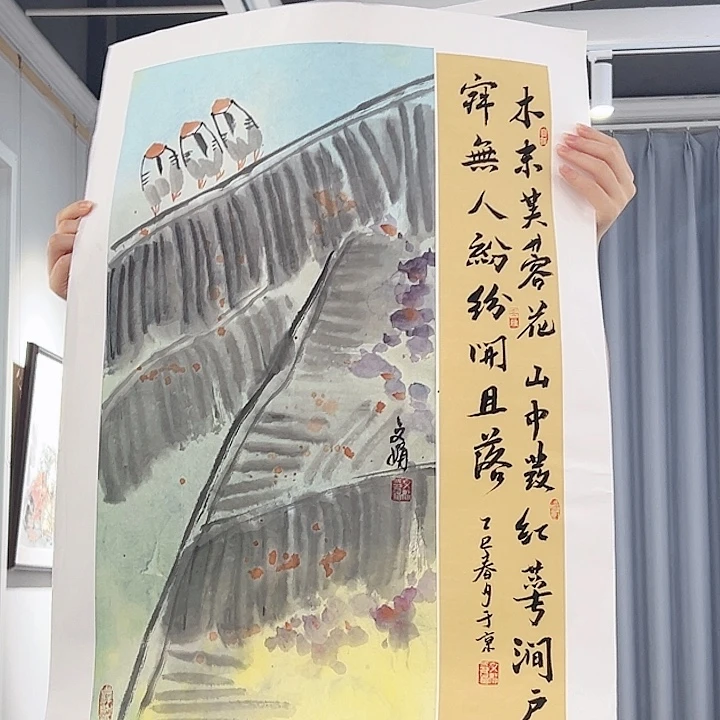 木末芙蓉花山中發紅萼澗户
寂無人紛紛開且落
乙巳春月于京
文娟